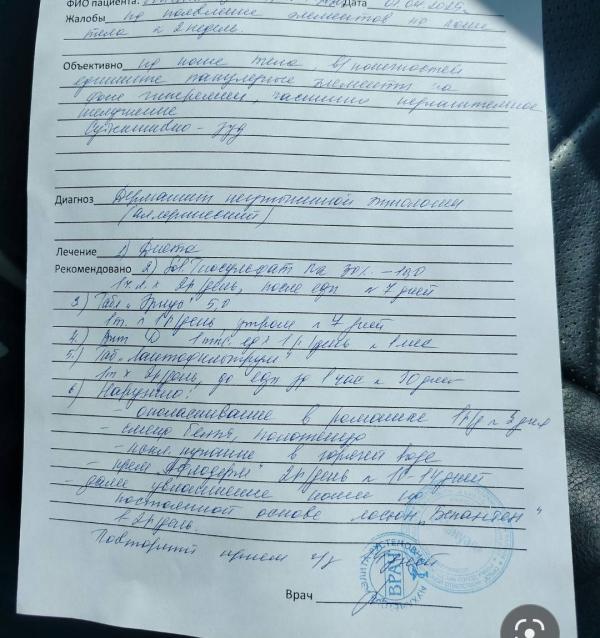 ФИО пациента: Дата 01.04.2025г
Жалобы на появление элементов на коже
тела 2 недели.
Объективно на коже тела, в/конечностей
единичные папулезные элементы на
фоне гиперемии, частично
шелушение
Субъективно - зуд
Диагноз Дерматит неуточненной этиологии
(аллергический)
Лечение 1) Диета
Рекомендовано 2) Sol. Тиосульфат Na 30% - 100
1ч.л. x 2р/день, после еды n 7 дней
3) Табл „Эриус" 5,0
1т. x 1р/день утром n 7 дней
4) Вит Д ед x 1р/день n 1 мес
5) Табл „Лактофильтрум"
1т x 2р/день, до еды за 1 час n 10 дней
6) Наружно:
- ополаскивание в ромашке 1р/д n 3 дня
- смена белья, полотенца
- купание в горячей воде
- крем „Афлодерм" 2р/день n 10-14 дней
- далее увлажнение кожи на
постоянной основе лосьон „Бепантен"
1-2р/день.
Повторный прием ч/з дней
Врач
ВРАЧ